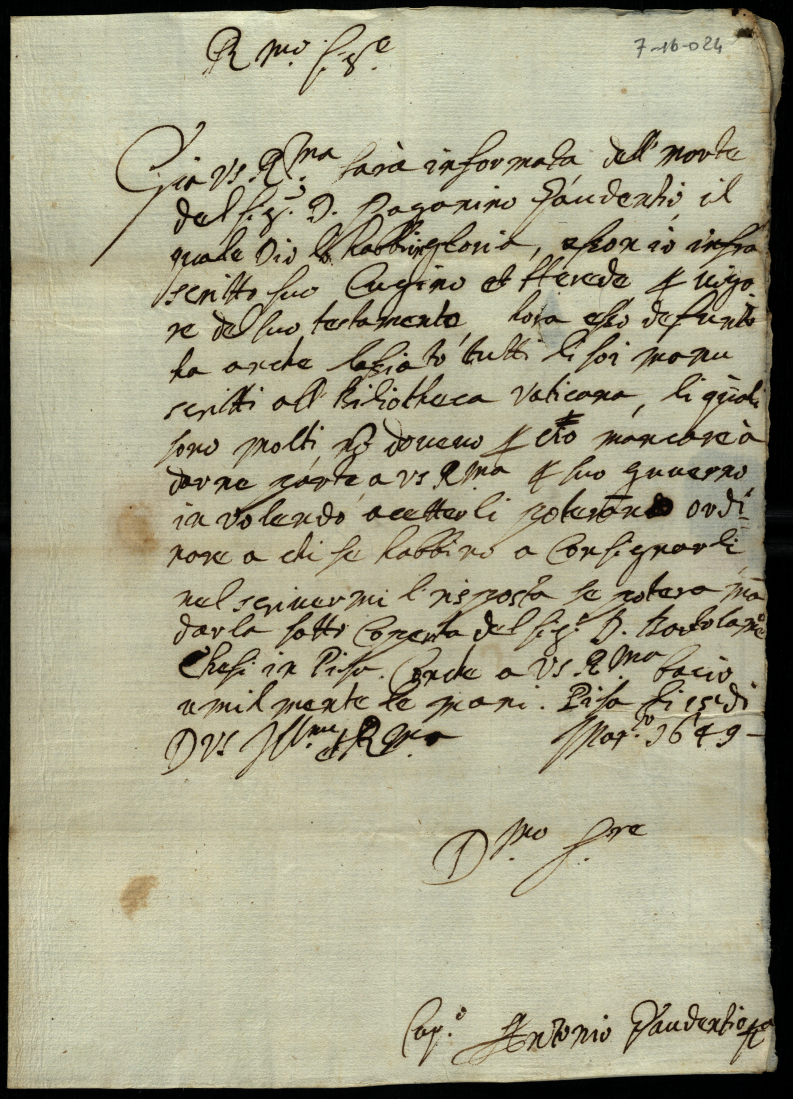 7-16-024
R.mo Sig.re
Già Vs. R.ma sarà informata dell morte
del Sig.r D. Paganino Gaudentio, il
quale Dio lo habbi in gloria, io infra
scritto suo Cugino et Herede p vigo
re del suo testamente, hora esso defunto
ha anche lasciato tutti li soi manu
scritti all Biliotheca Vaticana, li quali
sono molti, doveuo p mancare à
darne parte a Vs R.ma p suo guuerno
in volendo acettarli poteranno ordi
nare a chi se habbino a Consignarli,
nel scriuermi l risposta se potera man
darla sotto Coperta del sig.r D. Bartolameo
Chesi in Pisa. Conche a Vs. R.ma bacio
umilmente le mani. Pisa li 15 di
D Vs Ill.ma et R.ma Mar.zo 1649
D.mo S.re
Cap.o Antonio Gaudentio